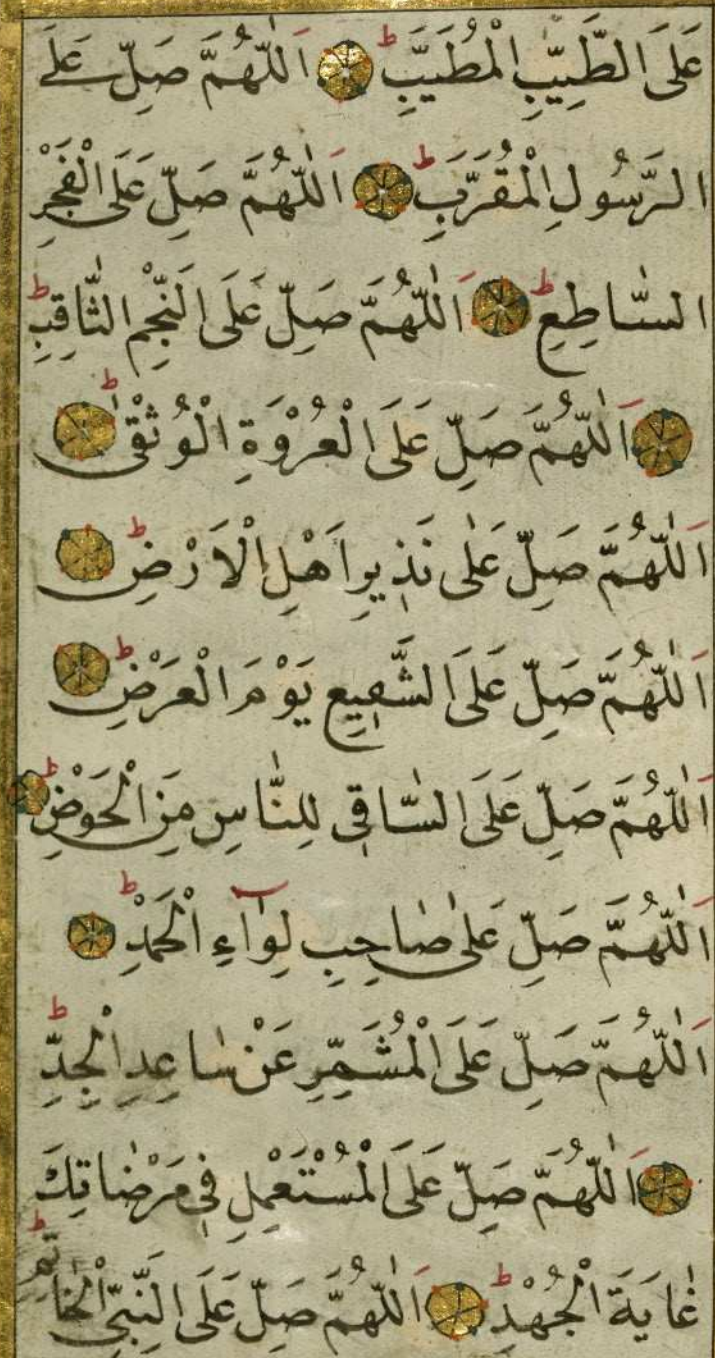 عَلَى الطَّيِّبِ الْمُطَيَّبِ ط اَللّٰهُمَّ صَلِّ عَلَے
الرَّسُولِ الْمُقَرَّبِ ط اَللّٰهُمَّ صَلِّ عَلَى الْفَجْرِ
السَّاطِعِ ط اَللّٰهُمَّ صَلِّ عَلَى النَّجْمِ الثَّاقِبِ ط
اَللّٰهُمَّ صَلِّ عَلَى الْعُرْوَةِ الْوُثْقٰى ط
اَللّٰهُمَّ صَلِّ عَلٰى نَذِيرِ اَهْلِ الْاَرْضِ ط
اَللّٰهُمَّ صَلِّ عَلَى الشَّفِيعِ يَوْمَ الْعَرْضِ ط
اَللّٰهُمَّ صَلِّ عَلَى السَّاقِى لِلنَّاسِ مِنَ الْحَوْضِ ط
اَللّٰهُمَّ صَلِّ عَلٰى صَاحِبِ لِوَآءِ الْحَمْدِ ط
اَللّٰهُمَّ صَلِّ عَلَى الْمُشَمِّرِ عَنْ سَاعِدِ الْجِدِّ ط
اَللّٰهُمَّ صَلِّ عَلَى الْمُسْتَعْمِلِ فِى مَرْضَاتِكَ
غَايَةَ الْجُهْدِ ط اَللّٰهُمَّ صَلِّ عَلَى النَّبِىِّ الْخَاتِمِ ط